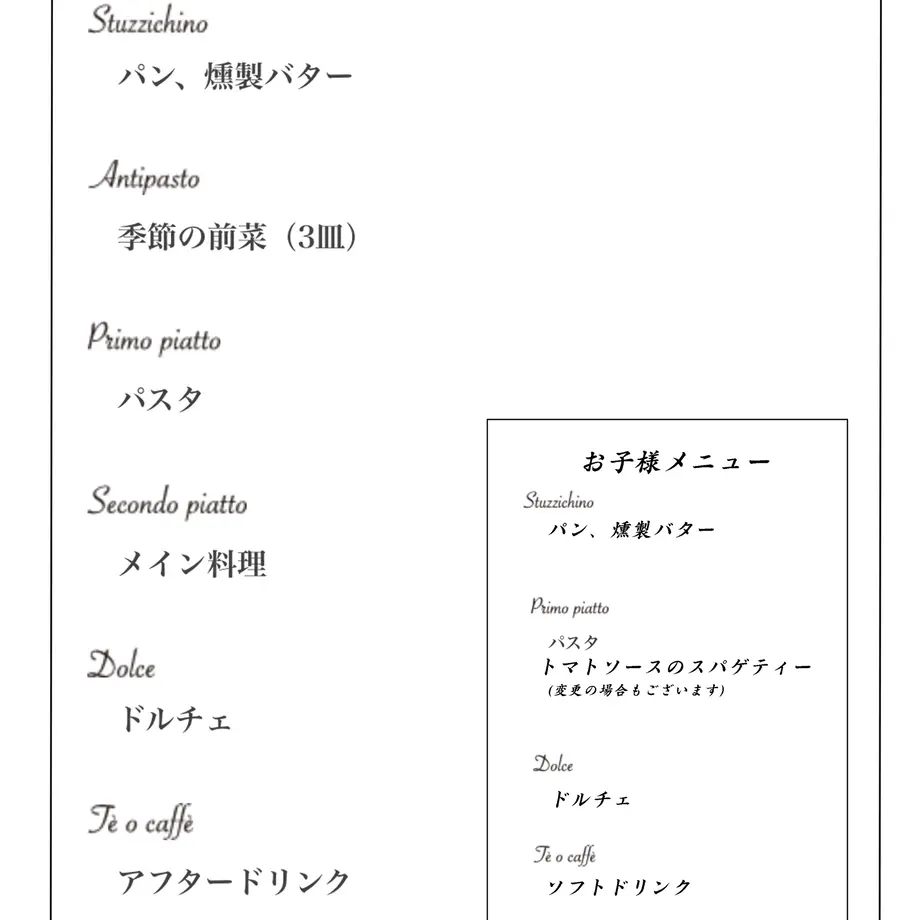 Stuzzichino
パン、燻製バター
Antipasto
季節の前菜（3皿）
Primo piatto
パスタ
Secondo piatto
メイン料理
Dolce
ドルチェ
Tè o caffè
アフタードリンク
お子様メニュー
Stuzzichino
パン、燻製バター
Primo piatto
パスタ
トマトソースのスパゲティー
(変更の場合もございます)
Dolce
ドルチェ
Tè o caffè
ソフトドリンク